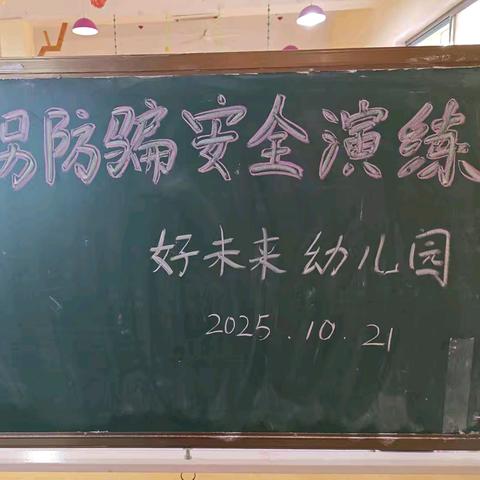 拐防骗安全演練
好未来幼儿园
2025.10.21